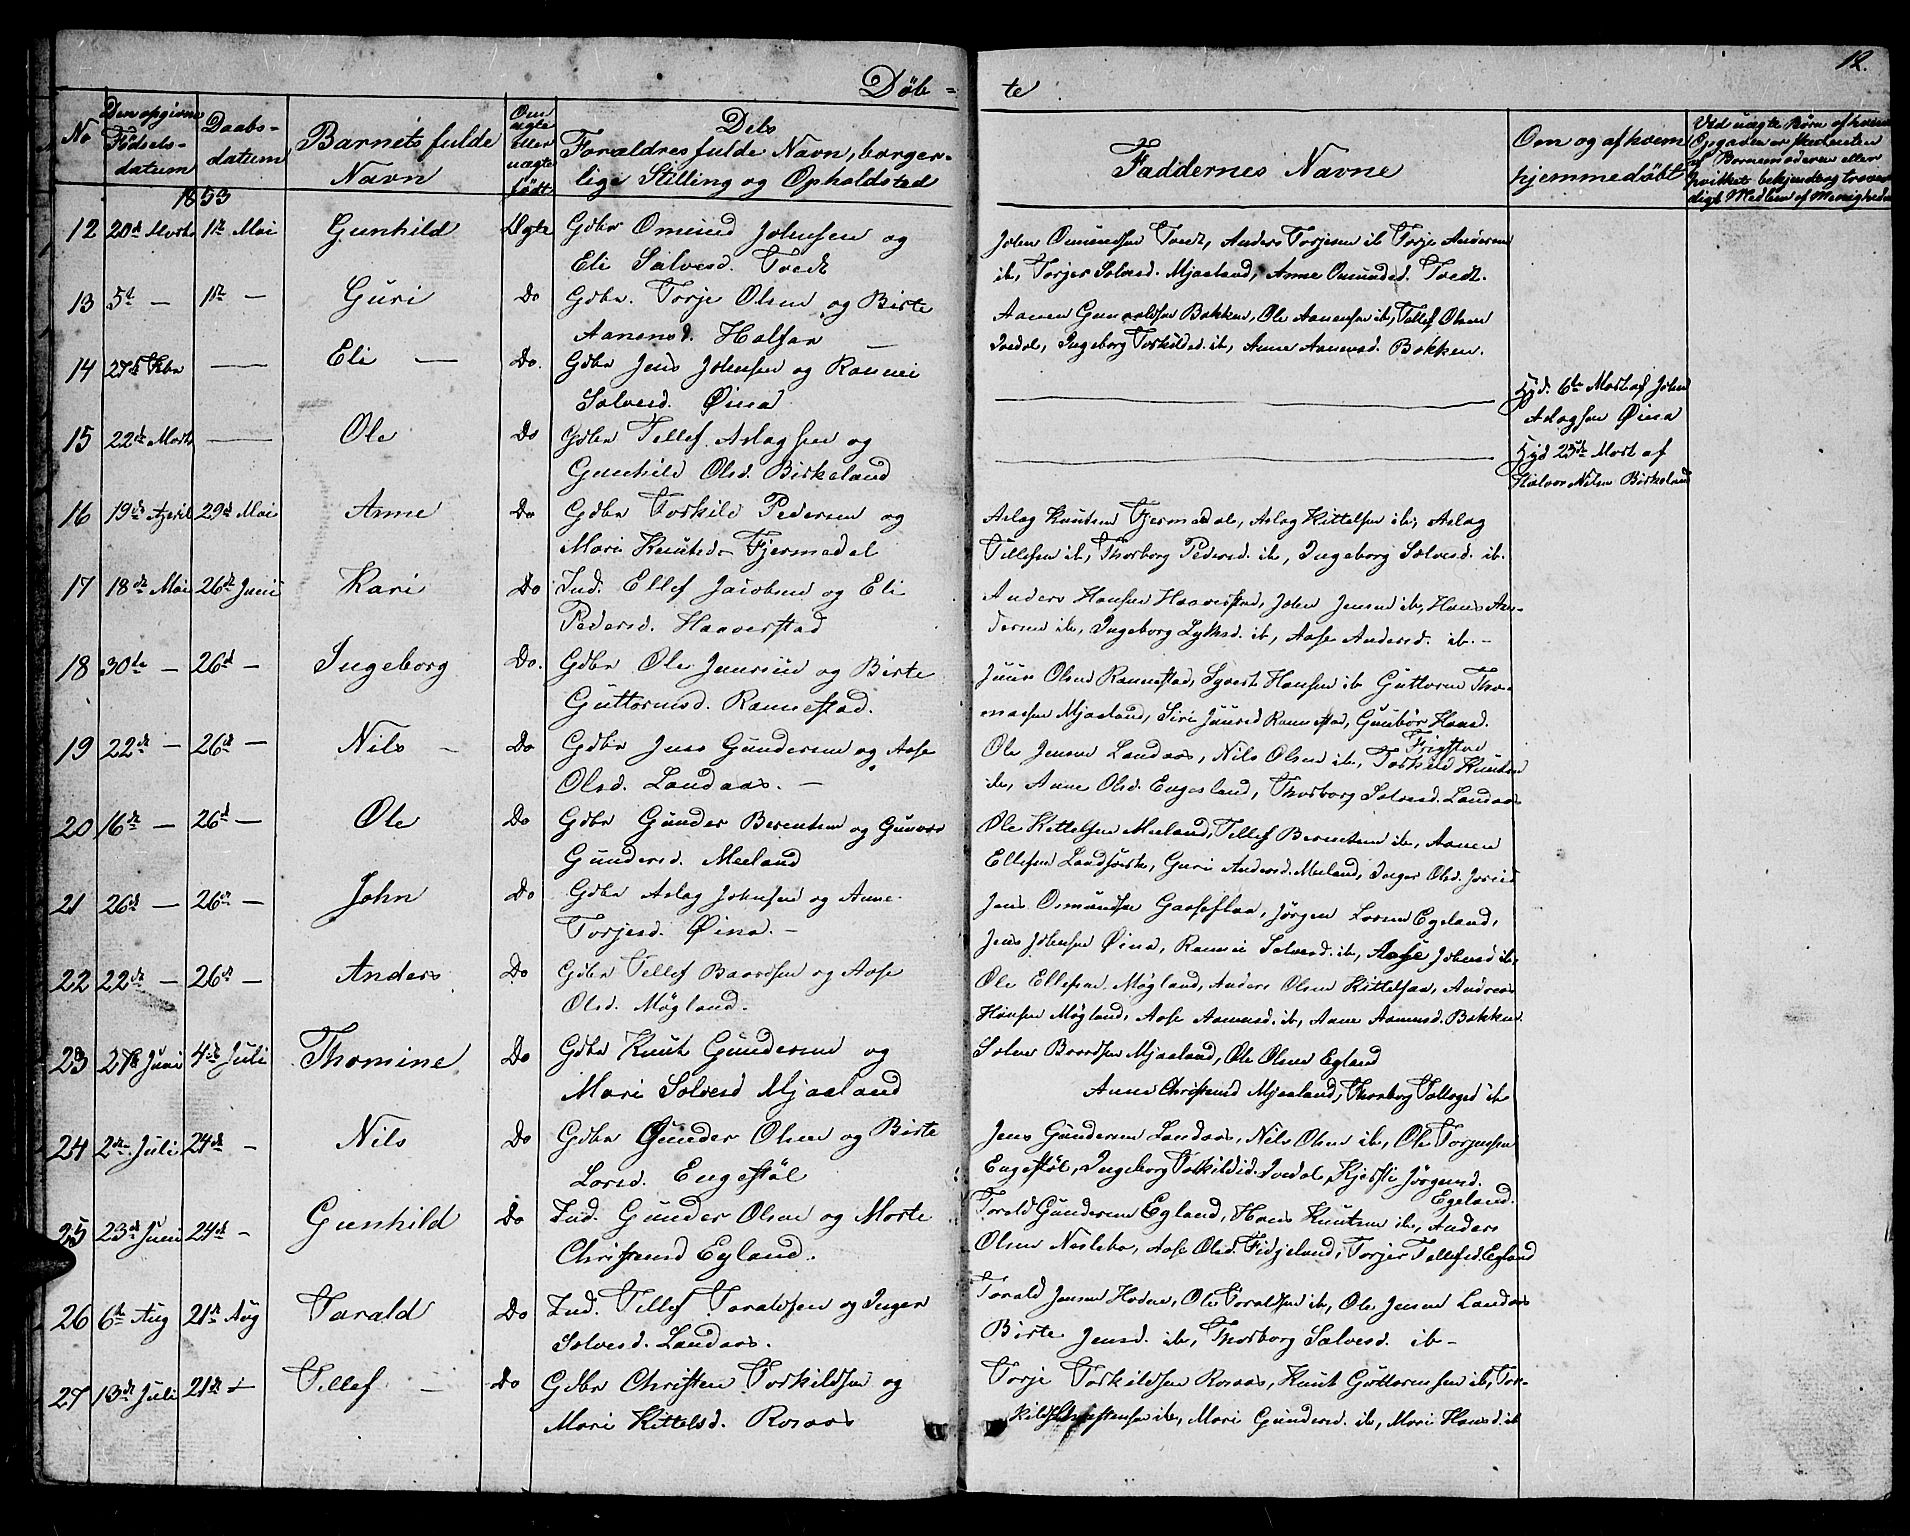 12.
Døb - te
No
Den opgivne Fødsels-datum
Daabs-datum
Barnets fulde Navn
Om ægte eller uægte født
Dets Forældres fulde Navn, borger-lige Stilling og Opholdsted
Faddernes Navne
Om og af hvem hjemmedøbt
Ved uægte Børn af hvem Opgaven er
af Barnemoderen eller
hvilket bekjendt og trovær-
digt Medlem af Menigheden
1853
12 20de Marts 1ste Mai Gunhild Ægte Gdbr Omund Johnsen og
Eli Salvesd. Tvedt
John Omundsen Tvedt, Anders Torjesen ib, Torje Andersen
ib, Torjer Salvesd. Mjaaland, Anne Omundsd. Tvedt.
13 5te — 1ste — Guri Do Gdbr. Torje Olsen og Birte
Aanensd.
Aanen Gunvaldsen Bakken, Ole Aanensen ib, Tellef Olsen
Ivedal, Ingeborg Torkildsd. ib, Anne Aanensd. Bakken.
14 27de Fbr — Eli — Do. Gdbr Jens Johnsen og Rannei
Salvesd. Øina
Hjd. 6te Mart af John
Aslagsen Øina
15 22de Marts — Ole Do Gdbr Tellef Aslagsen og
Gunhild Olsd. Birkeland
Hjd 25de Mart af
Halvor Nilsen Birkeland
16 19de April 29de Mai Anne Do Gdbr Torkild Pedersen og
Mari Knutsd. Fjermedal
Aslag Knutsen Fjermedal, Aslag Kittelsen ib, Aslag
Tellefsen ib, Thorborg Pedersd. ib, Ingeborg Salvesd. ib.
17 18de Mai 26de Juni Kari Do Ind. Ellef Jacobsen og Eli
Pedersd. Haaverstad
Anders Hansen Haaverstad, John Jensen ib, Hans An-
dersen ib, Ingeborg ib, Aase Andersd. ib. -
18 30te — 26de — Ingeborg Do. Gdbr Ole Juursen og Birte
Guttormsd. Rannestad.
Juur Olsen Rannestad, Syvert Hansen ib Guttorm Tho-
massen Mjaaland, Siri Juursd Rannestad, Gunbør Hansd.
19 22de — 26de — Nils — Do Gdbr Jens Gundersen og Aase
Olsd. Landaas. —
Frigstad
Ole Jensen Landaas, Nils Olsen ib, Torkild Knutsen
ib, Anne Olsd. Engesland, Thorborg Salvesd. Landaas
20 16de — 26de — Ole Do Gdbr Gunder Berentsen og Gunvor
Gundersd. Meeland
Ole Kittelsen Meeland, Tellef Berentsen ib, Aanen
Ellefsen Guri Andersd. Meeland, Inger Olsd.
21 26de — 26de — John Do Gdbr Aslag Johnsen og Anne
Torjesd. Øina. —
Jens Osmundsen Gaaseflaa, Jørgen Larsen Egeland,
Jens Johnsen Øina, Rannei Salvesd. ib, Aase Johnsd ib,
22 22de — 26de — Anders Do Gdbr Tellef Baardsen og Aase
Olsd. Møgland.
Ole Ellefsen Møgland, Anders Olsen Andreas
Hansen Møgland, Aase Aanensd. ib, Anne Aanensd. Bakken.
23 27de Juni 4de Juli Thomine Do Gdbr Knut Gundersen og
Mari Salvesd Mjaaland
Salve Baardsen Mjaaland, Ole Olsen Egland
Anne Christensd Mjaaland, Thorborg ib
24 2den Juli 24de — Nils Do Gdbr Gunder Olsen og Birte
Larsd. Engestøl
Jens Gundersen Landaas, Nils Olsen ib, Ole Torjussen
Engestøl, Ingeborg Torkildsd. Ivedal, Kjersti Jørgensd.
Egeland.
25 23de Juni 24de — Gunhild Do Ind. Gunder Olsen og Marte
Christensd Egland.
Tarald Gundersen Egland, Hans Knutsen ib, Anders
Olsen Aase Olsd. Fidjeland, Torjer Tellefsd. Egland
26 6te Aug 21de Aug Tarald Do Ind. Tellef Taraldsen og Inger
Salvesd. Landaas.
Tarald Jensen Ole Taraldsen ib, Ole Jensen Landaas
Birte Jensd. ib, Thorborg Salvesd. ib —
27 13de Juli 21de — Tellef — Do Gdbr Christen Torkildsen og
Mari Kittelsd. Rosaas
Torje Torkildsen Rosaas, Knut Guttormsen ib, Tor-
kild Christensen ib, Mari Gundersd. ib, Mari Hansd. ib